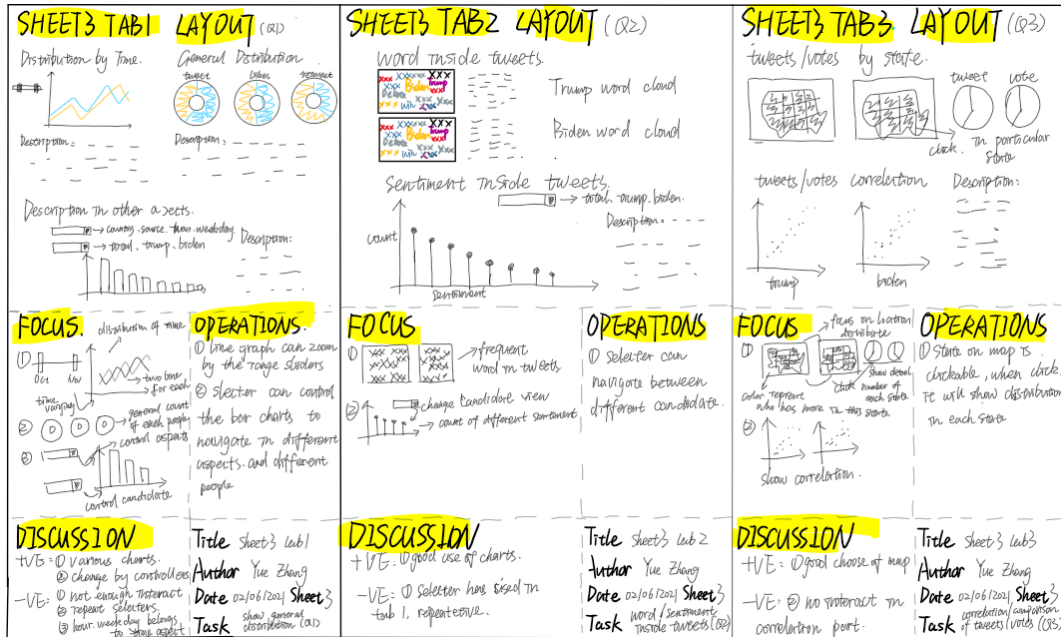 SHEET3 TAB1 LAYOUT (Q1)
Distribution by Time.
General Distribution
tweet
likes
retweet
Description:
Description:
Description in other aspects.
→ country. source. hour. weekday
→ total. trump. biden
Description:
FOCUS.
distribution of time
①
Oct
Nov
two line
for each
time
varying
②
general count
of each people
③
control aspects
control candidate
OPERATIONS.
① Line graph can zoom
by the range sliders
② Slecter can control
the bar charts to
navigate in different
aspects. and different
people
DISCUSSION
+VE: ① various charts.
② change by controllers
-VE: ① not enough interact
② repeat selecters.
③ hour. weekday belongs
to time aspect
Title Sheet3 tab1
Author Yue Zhang
Date 02/06/2021 Sheet3
Task show general
distribution (Q1)
SHEET3 TAB2 LAYOUT (Q2)
Word inside tweets.
xxx
Biden
Trump
Debate
with
Trump word cloud
xxx
Biden
Trump
Debate
with
Biden word cloud
Sentiment inside tweets.
→ total. trump. biden.
count
sentiment
Description:
FOCUS
①
→ frequent
word in tweets
②
change candidate view
→ count of different sentiment
OPERATIONS
① Selecter can
navigate between
different candidate.
DISCUSSION
+VE: ① good use of charts.
-VE: ① Selecter has used in
tab 1, repetetive.
Title Sheet3 tab2
Author Yue Zhang
Date 02/06/2021 Sheet3
Task word/sentiment
inside tweets (Q2)
SHEET3 TAB3 LAYOUT (Q3)
tweets/votes by state.
tweet
vote
click. in particular
state
tweets/votes correlation
Description:
trump
biden
FOCUS
focus on location
distribute
①
click
show detail
number of
each state
color represent
who has more in this state
②
show correlation.
OPERATIONS
① State on map is
clickable, when click,
it will show distribution
in each state
DISCUSSION
+VE: ① good choose of map
-VE: ② no interact in
correlation part.
Title Sheet3 tab3
Author Yue Zhang
Date 02/06/2021 Sheet3
Task correlation/comparison
of tweets/votes (Q3)